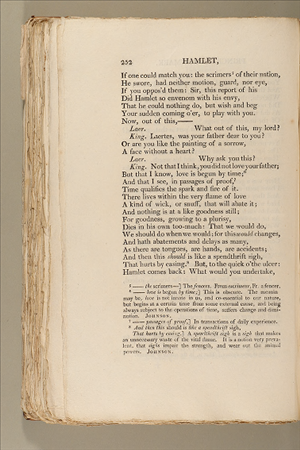 252 HAMLET,
If one could match you: the scrimers⁵ of their nation,
He swore, had neither motion, guard, nor eye,
If you oppos'd them: Sir, this report of his
Did Hamlet so envenom with his envy,
That he could nothing do, but wish and beg
Your sudden coming o'er, to play with you.
Now, out of this,——
Laer. What out of this, my lord?
King. Laertes, was your father dear to you?
Or are you like the painting of a sorrow,
A face without a heart?
Laer. Why ask you this?
King. Not that I think, you did not love your father;
But that I know, love is begun by time;
And that I see, in passages of proof,
Time qualifies the spark and fire of it.
There lives within the very flame of love
A kind of wick, or snuff, that will abate it;
And nothing is at a like goodness still;
For goodness, growing to a plurisy,
Dies in his own too-much: That we would do,
We should do when we would; for this would changes,
And hath abatements and delays as many,
As there are tongues, are hands, are accidents;
And then this should is like a spendthrift sigh,
That hurts by easing. But, to the quick o'the ulcer:
Hamlet comes back: What would you undertake,
—— the scrimers—] The fencers. From escrimeur, Fr. a fencer.
—— love is begun by time;] This is obscure. The meaning
may be, love is not innate in us, and co-essential to our nature,
but begins at a certain time from some external cause, and being
always subject to the operations of time, suffers change and diminution.
JOHNSON.
—— passages of proof,] In transactions of daily experience.
And then this should is like a spendthrift sigh,
That hurts by easing.] A spendthrift sigh is a sigh that makes
an unnecessary waste of the vital flame. It is a notion very prevalent,
that sighs impair the strength, and wear out the animal
powers. JOHNSON.